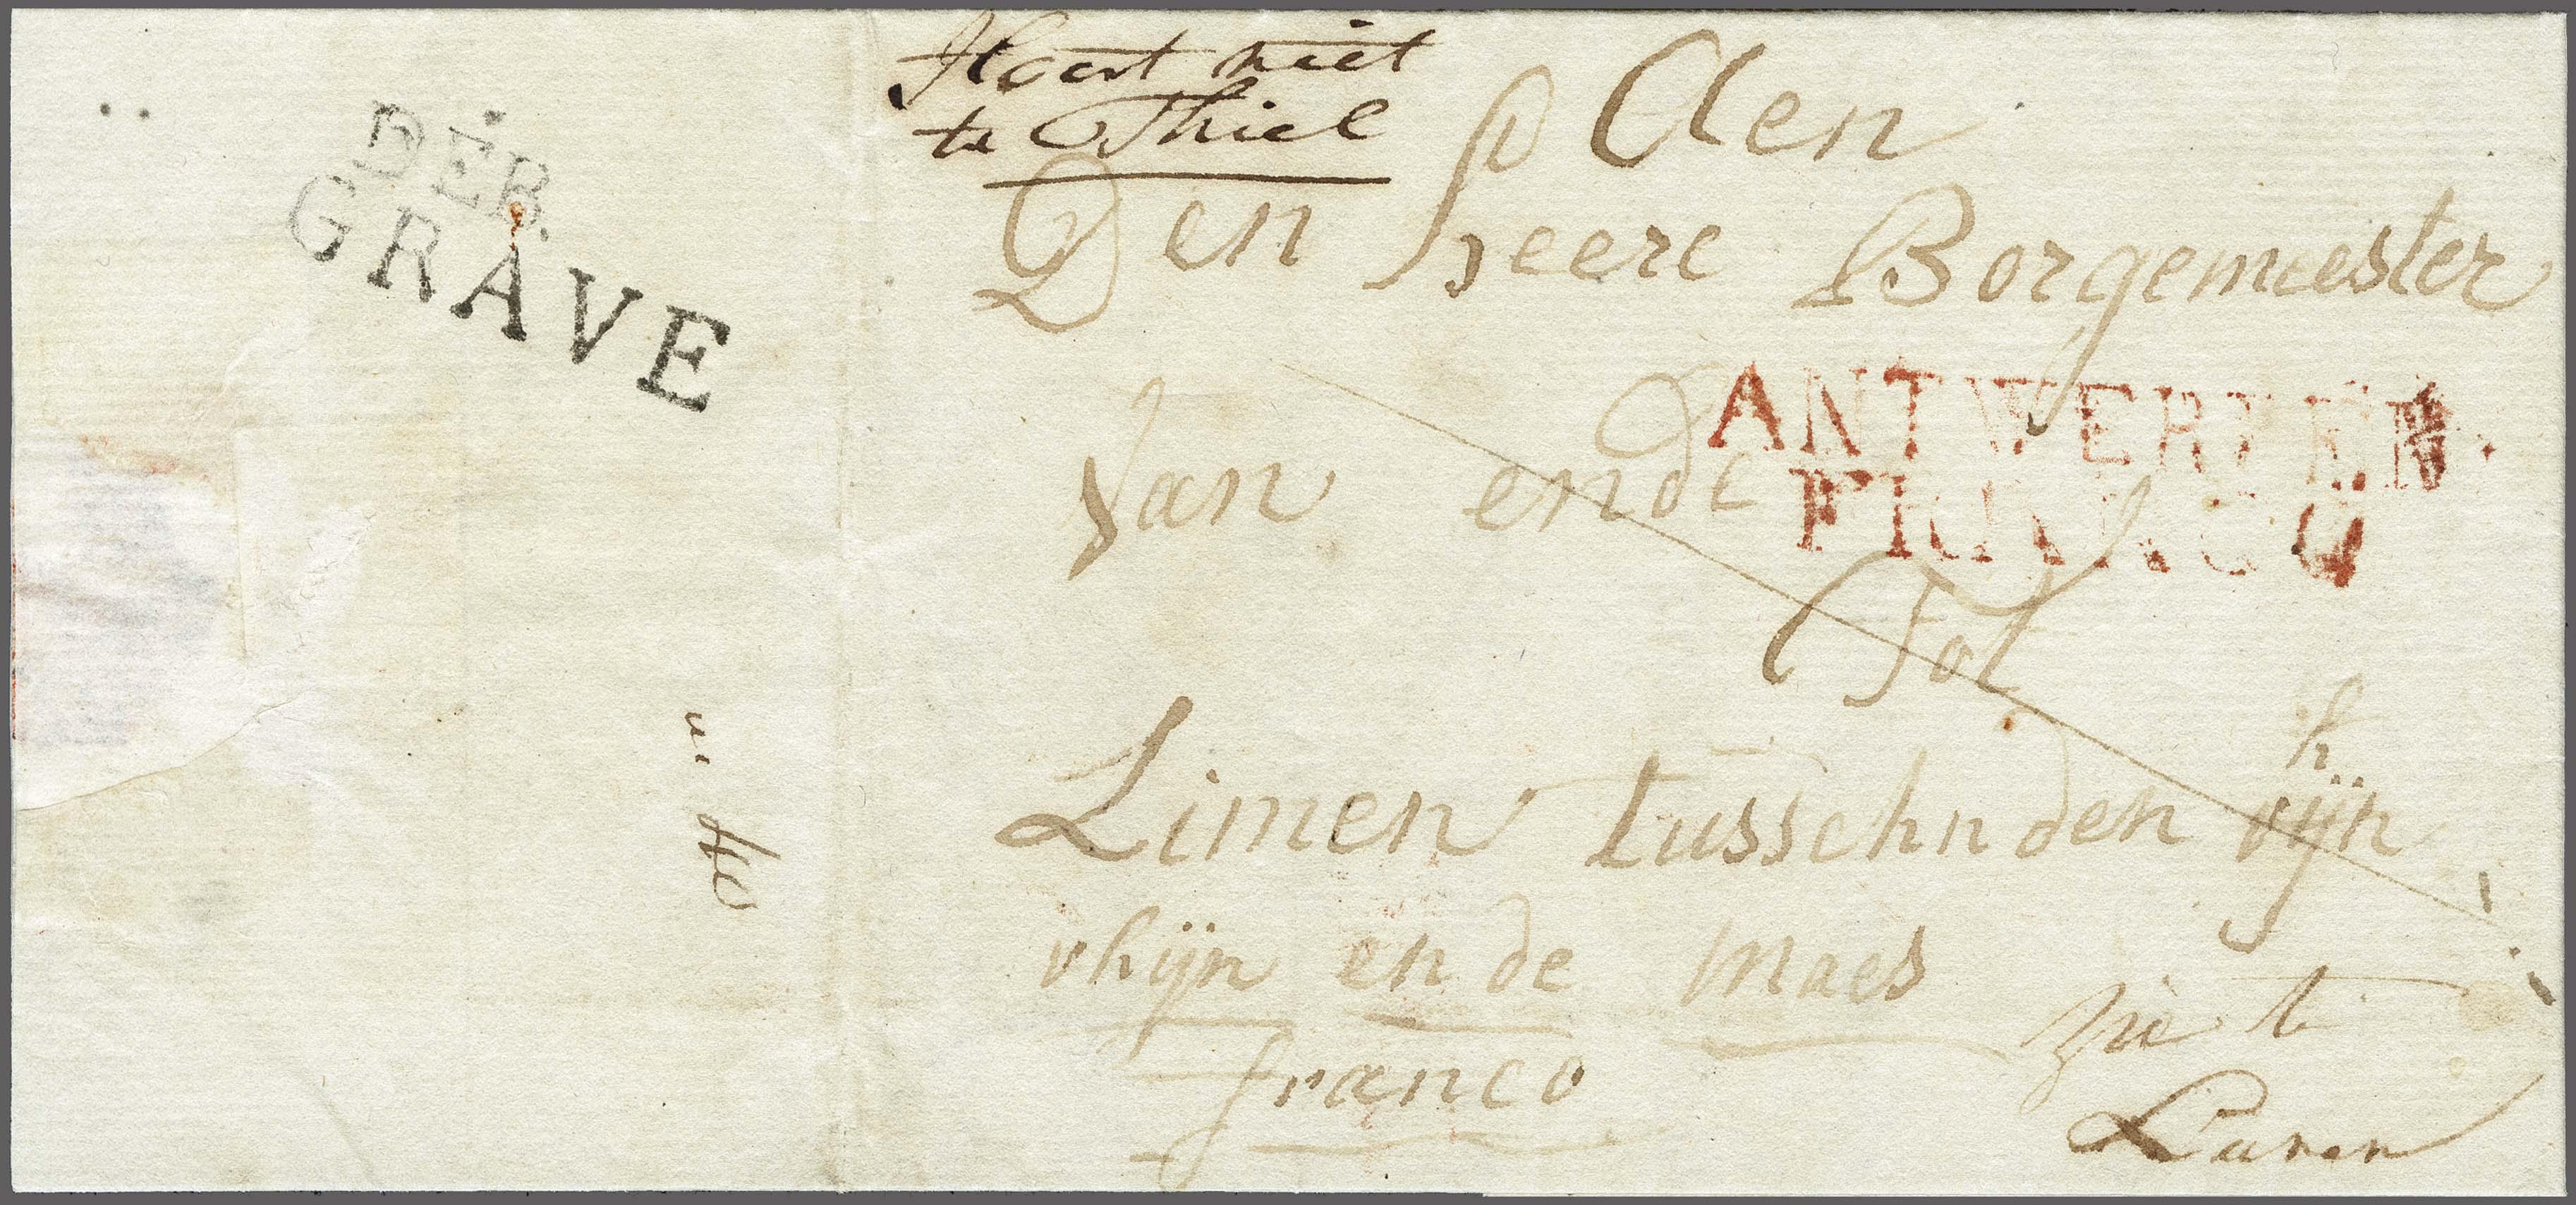 DÉB.
GRAVE
Hoort niet
te Thiel
Aen
Den heere Borgemeester
ANTWERPEN.
FRANCO
Van ende
Tol
Limen tusschn den rijn
h
rhijn en de Maes
franco
zie t
Luren